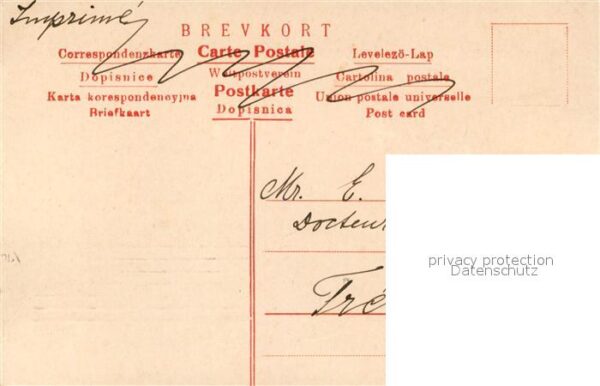 Imprimé
BREVKORT
Correspondenzkarte Carte Postale Levelezö-Lap
Dopisnice Weltpostverein Cartolina postale
Karta korespondencyjna Postkarte Union postale universelle
Briefkaart Dopisnica Post card
Mr. E.
Docteur
privacy protection
Datenschutz
Tré